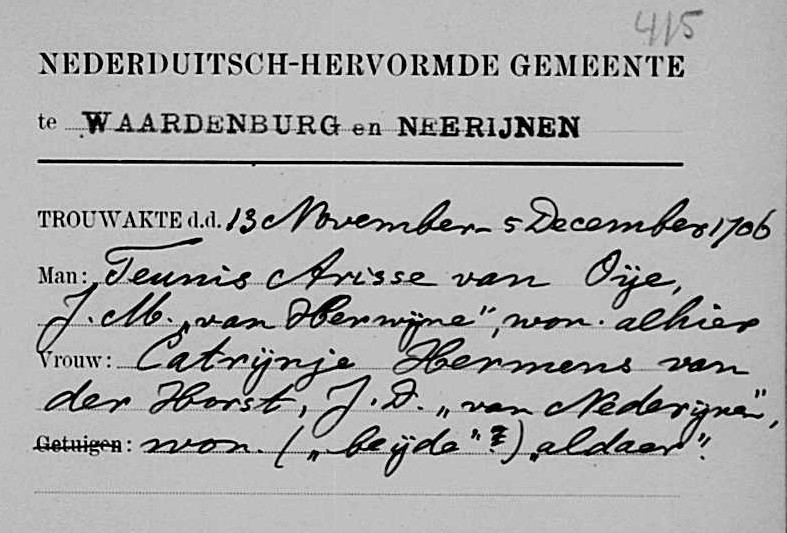 415
NEDERDUITSCH-HERVORMDE GEMEENTE
te WAARDENBURG en NEERIJNEN
TROUWAKTE d.d. 13 November - 5 December 1706
Man: Teunis Arisse van Oije,
J.M. „van Herwijne", won. alhier
Vrouw: Catrijnje Hermens van
der Horst, J.D. „van Nederijnen",
Getuigen: won. („beijde"?) „aldaer".